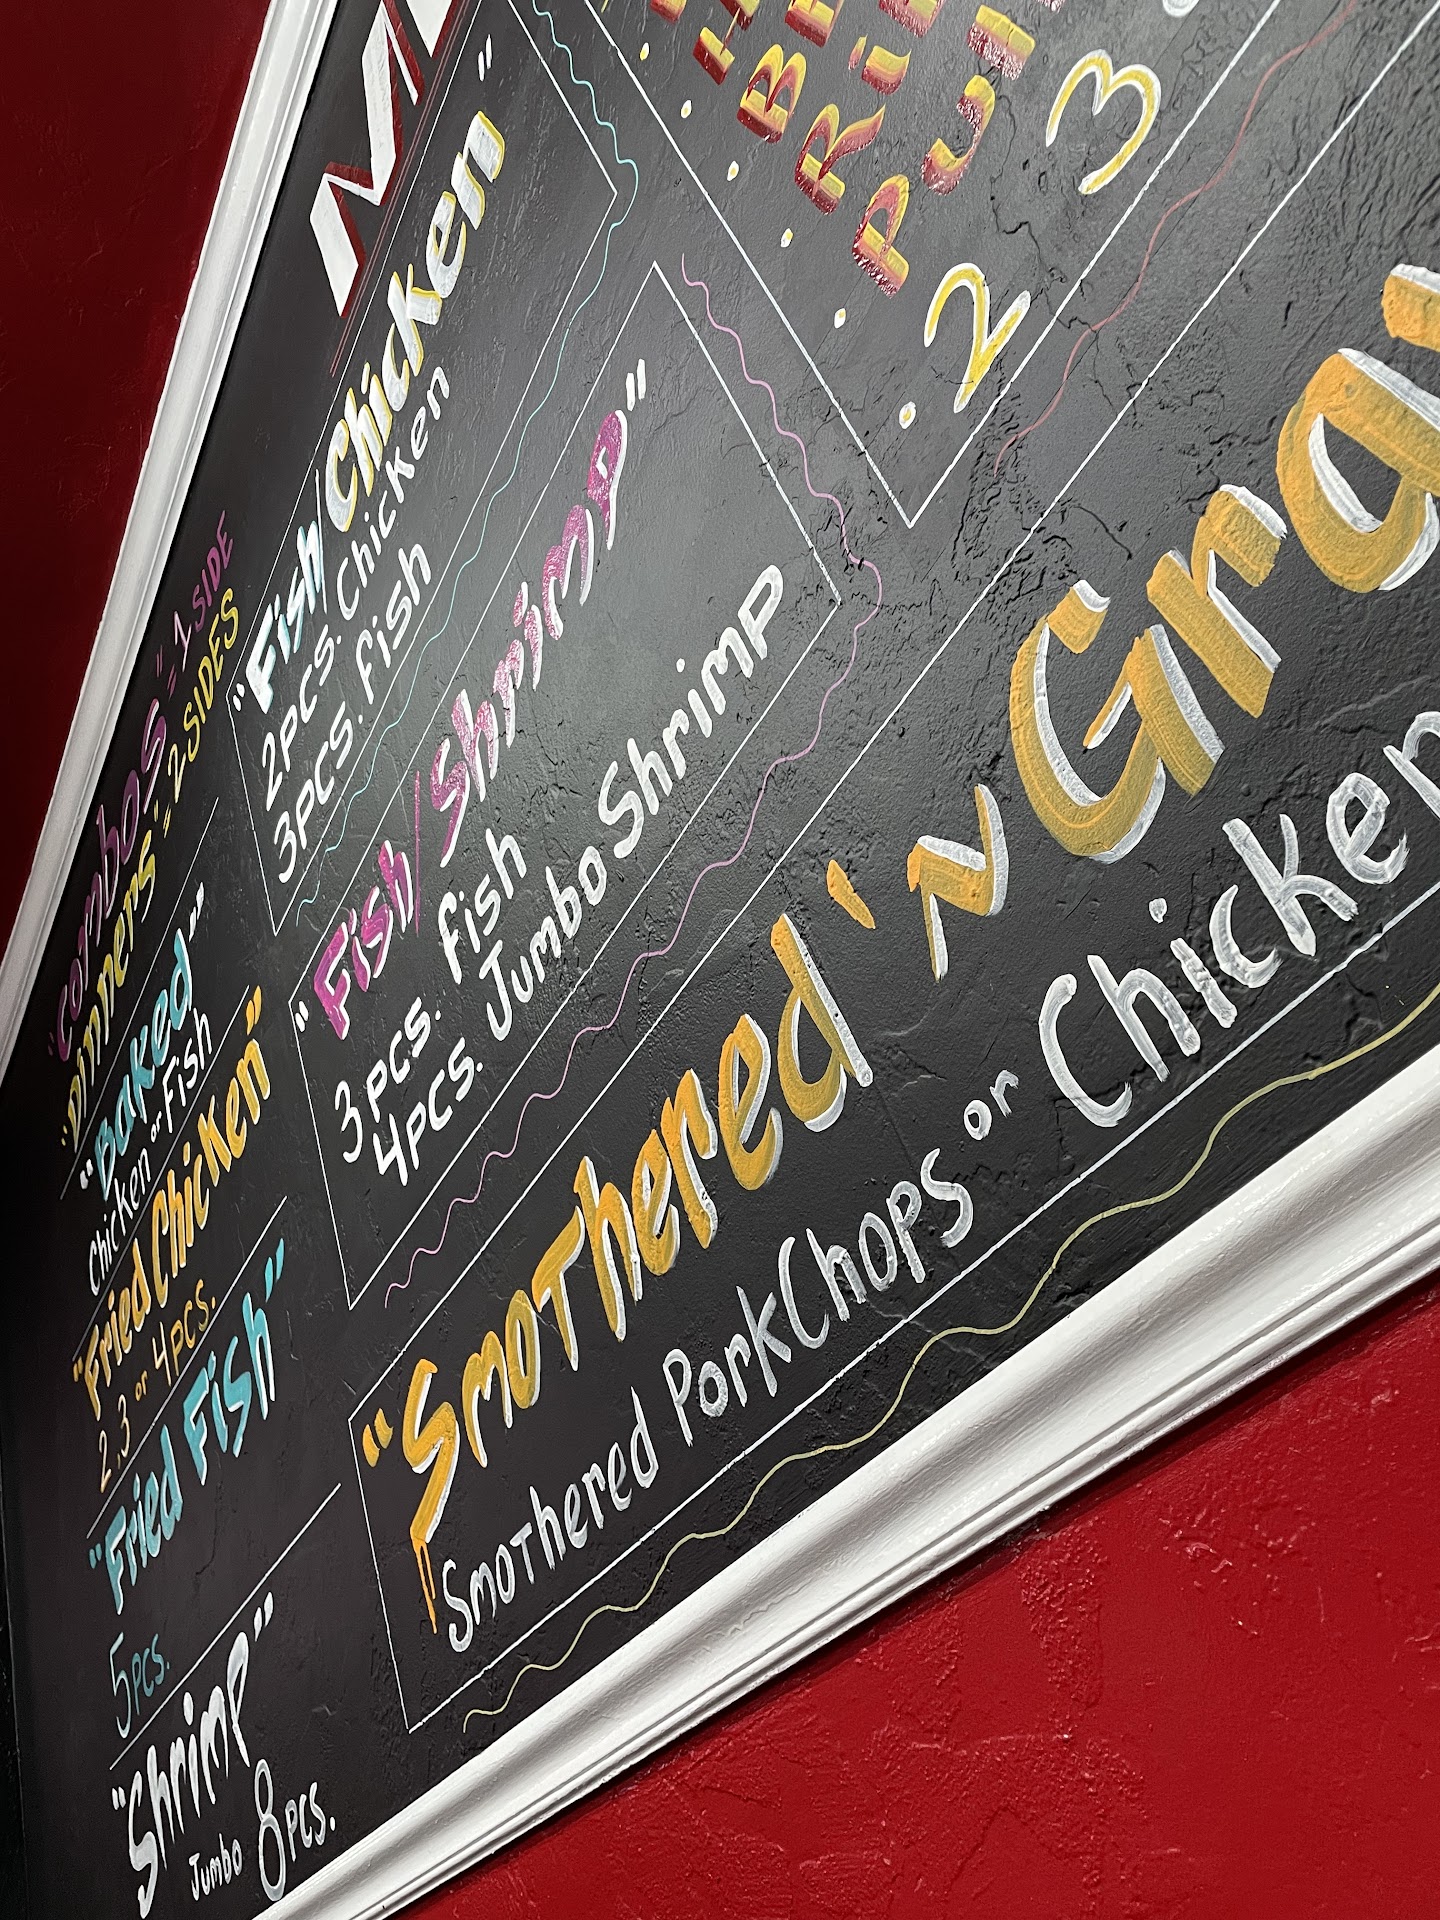 "combos" = 1 SIDE
"Dinners" = 2 SIDES
"Baked"
Chicken or Fish
"Fried Chicken"
2, 3 or 4 PCS.
"Fried Fish"
5 PCS.
"Shrimp"
Jumbo 8 PCS.
"Fish/Chicken"
2PCS. Chicken
3PCS. fish
"Fish/Shrimp"
3 PCS. fish
4PCS. Jumbo Shrimp
2
3
"Smothered 'N
Smothered PorkChops or Chicken